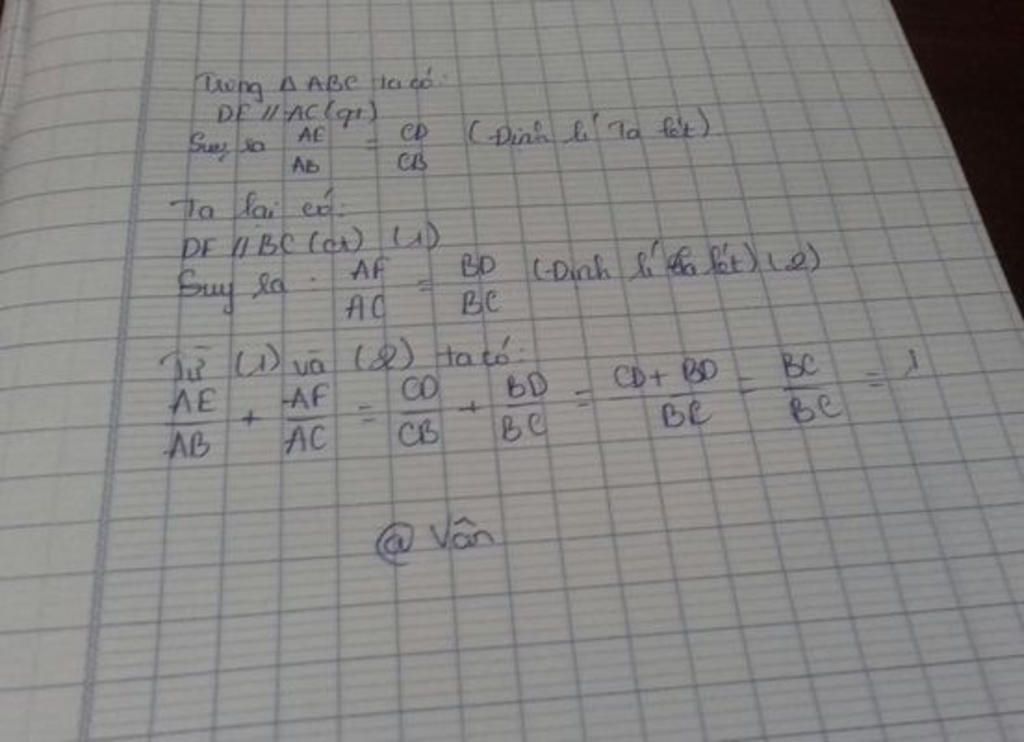 Trong Δ ABC ta có:
DE // AC (gt)
Suy ra AE/AB = CD/CB (Định lí Ta lét)
Ta lại có:
DF // BC (gt) (1)
Suy ra: AF/AC = BD/BC (Định lí Ta lét) (2)
Từ (1) và (2) ta có:
AE/AB + AF/AC = CD/CB + BD/BC = CD + BD/BC = BC/BC = 1
@ Vân